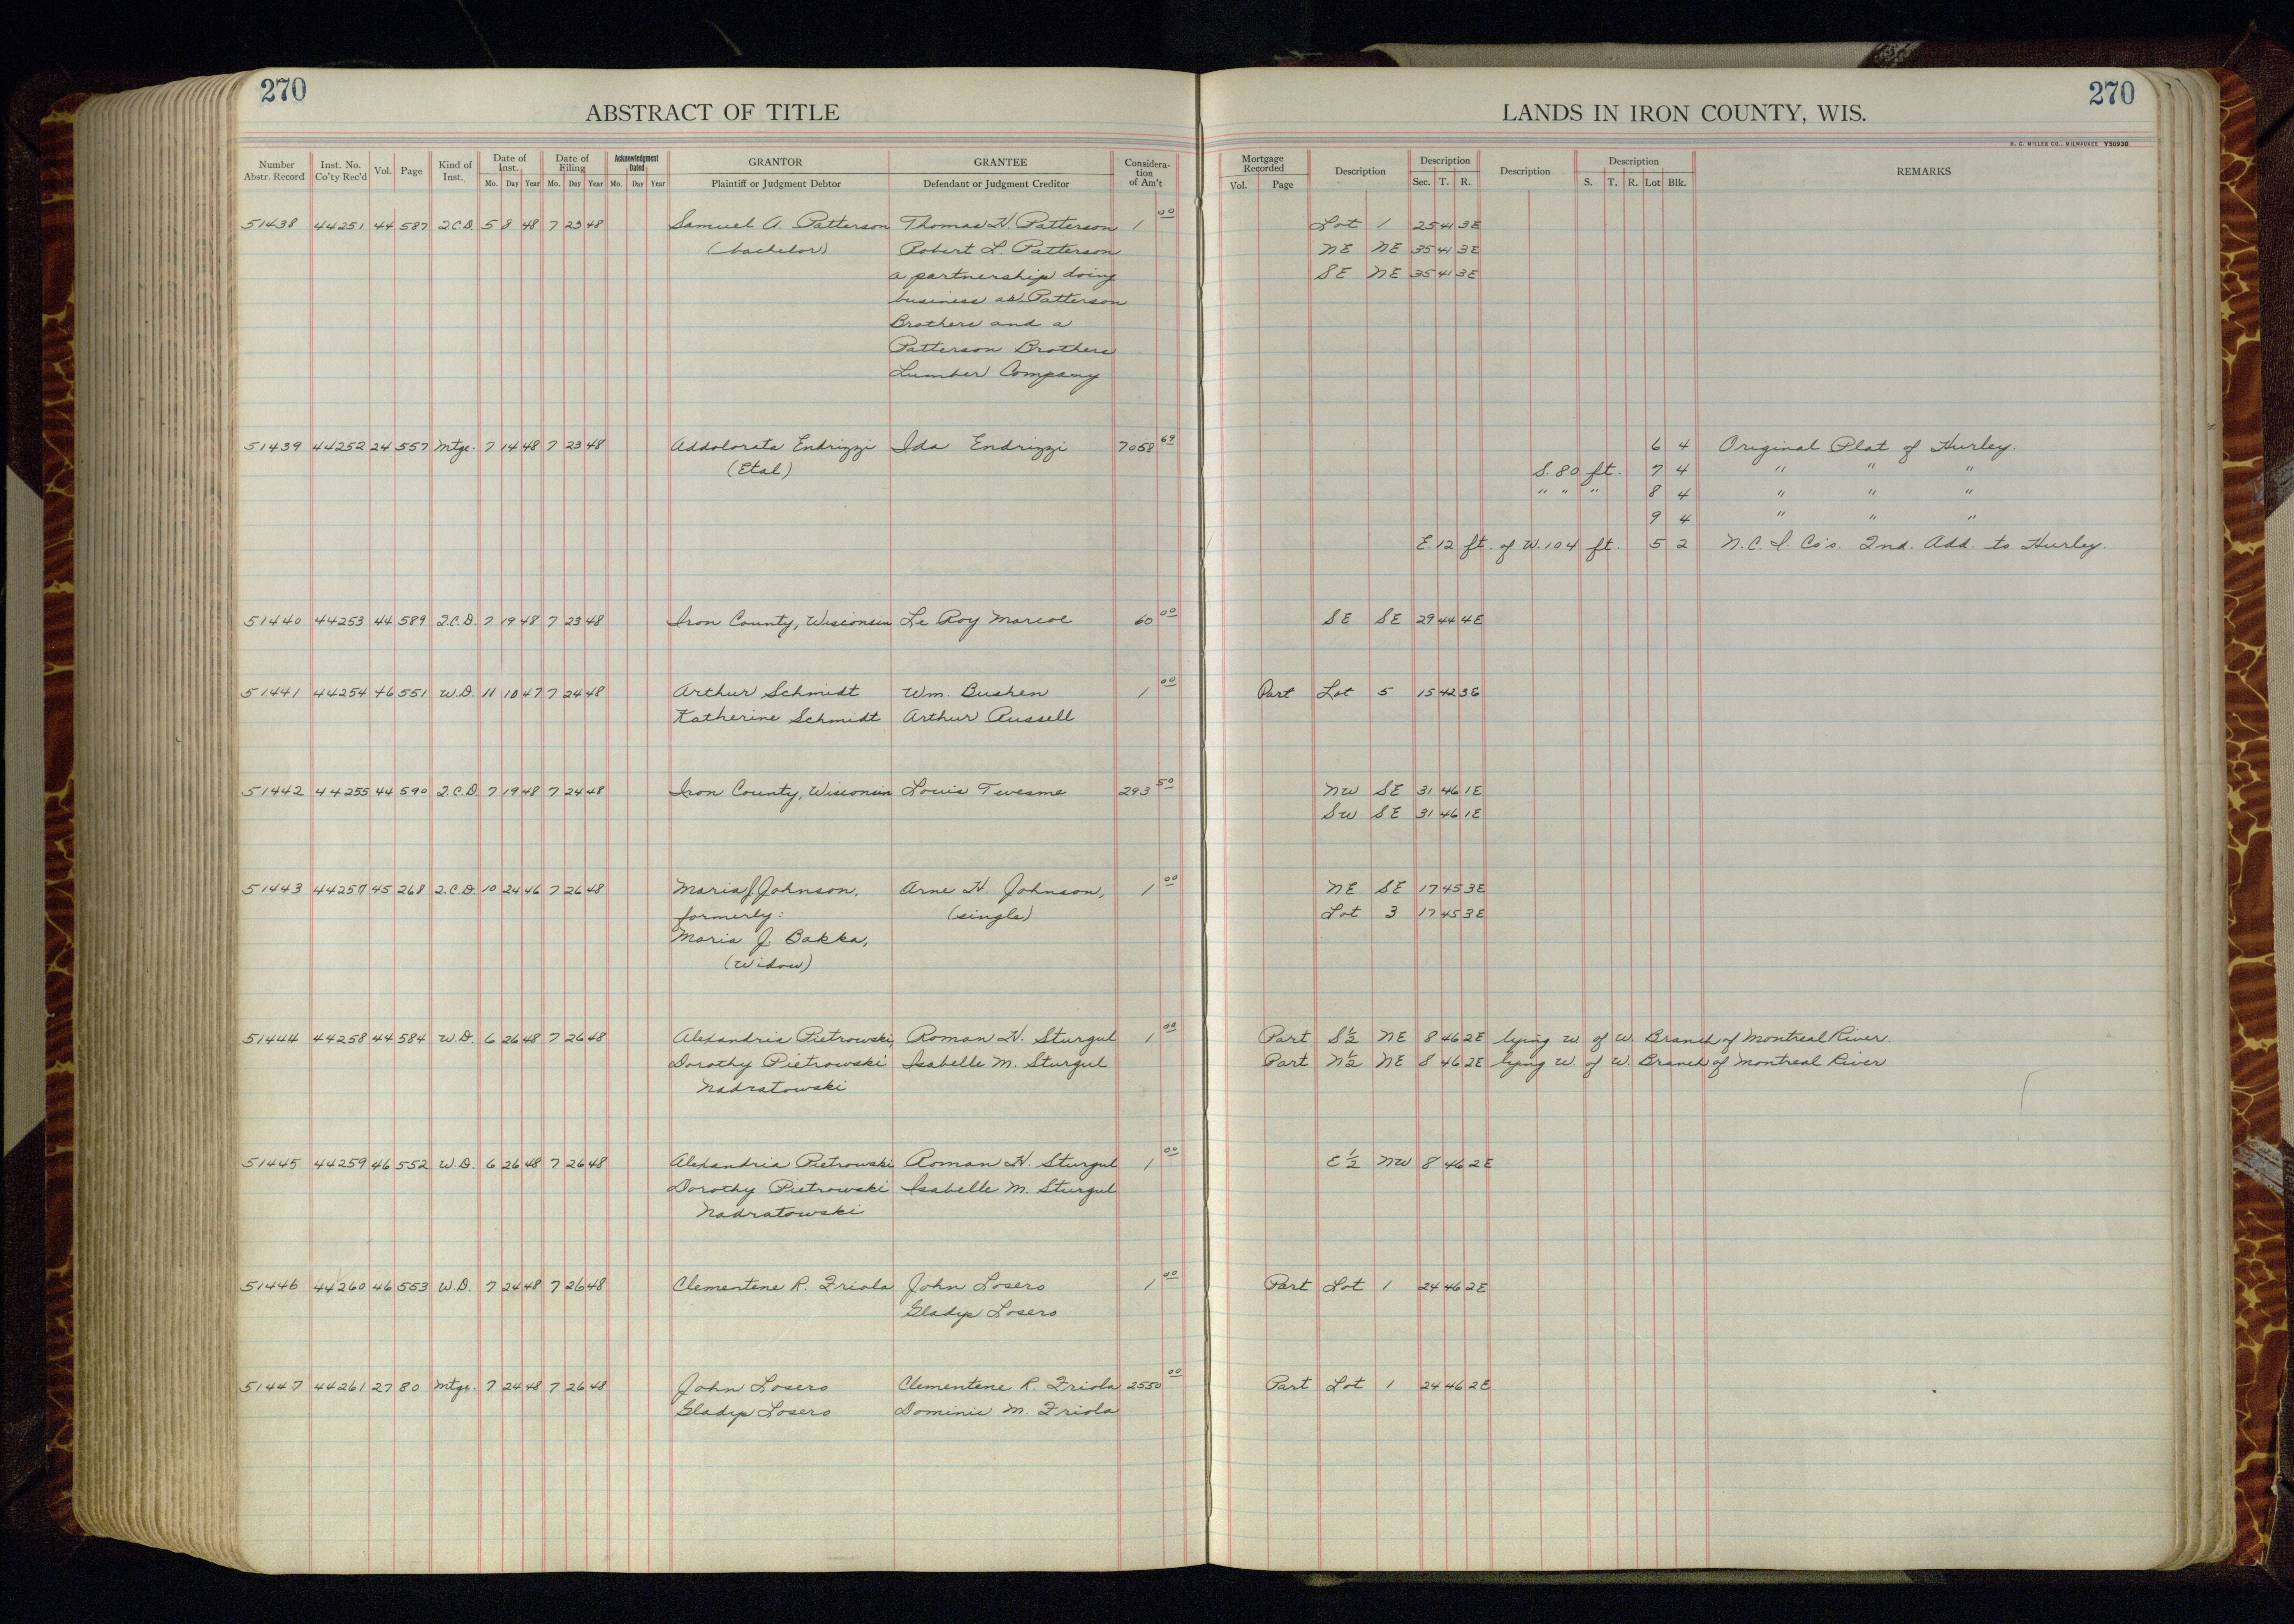 270
270
ABSTRACT OF TITLE
LANDS IN IRON COUNTY, WIS.
H. C. MILLER CO., MILWAUKEE Y50930
Number Abstr. Record Inst. No. Co'ty Rec'd Vol. Page Kind of Inst. Date of Inst. Date of Filing Acknowledgment Dated GRANTOR GRANTEE Considera-tion of Am't Mortgage Recorded Description Description Description Description REMARKS
Mo. Day Year Mo. Day Year Mo. Day Year Plaintiff or Judgment Debtor Defendant or Judgment Creditor Vol. Page Sec. T. R. S. T. R. Lot Blk.
51438 44251 44 587 Q.C.D. 5 8 48 7 23 48 Samuel A. Patterson Thomas H. Patterson 1 00 Lot 1 25 41 3E
(bachelor) Robert L. Patterson NE NE 35 41 3E
a partnership doing SE NE 35 41 3E
business as Patterson
Brothers and a
Patterson Brothers
Lumber Company
51439 44252 24 557 Mtge. 7 14 48 7 23 48 Addolorata Endrizzi Ida Endrizzi 7058 69 6 4 Original Plat of Hurley.
(Etal) S. 80 ft. 7 4 " " "
" " " 8 4 " " "
9 4 " " "
E. 12 ft. of W. 104 ft. 5 2 N.C.I. Co's. 2nd. Add. to Hurley.
51440 44253 44 589 Q.C.D. 7 19 48 7 23 48 Iron County, Wisconsin Le Roy Marcoe 60 00 SE SE 29 44 4E
51441 44254 46 551 W.D. 11 10 47 7 24 48 Arthur Schmidt Wm. Bushen 1 00 Part Lot 5 15 42 3E
Katherine Schmidt Arthur Russell
51442 44255 44 590 Q.C.D. 7 19 48 7 24 48 Iron County, Wisconsin Louis Tvesme 293 50 NW SE 31 46 1E
SW SE 31 46 1E
51443 44257 45 268 Q.C.D. 10 24 46 7 26 48 Maria J. Johnson, Arne H. Johnson, 1 00 NE SE 17 45 3E
formerly: (single) Lot 3 17 45 3E
Maria J. Bakka,
(Widow)
51444 44258 44 584 W.D. 6 26 48 7 26 48 Alexandria Pietrowski, Roman H. Sturgul 1 00 Part S½ NE 8 46 2E lying W. of W. Branch of Montreal River.
Dorothy Pietrowski Isabelle M. Sturgul Part N½ NE 8 46 2E lying W. of W. Branch of Montreal River
Nadratowski
51445 44259 46 552 W.D. 6 26 48 7 26 48 Alexandria Pietrowski Roman H. Sturgul 1 00 E½ NW 8 46 2E
Dorothy Pietrowski Isabelle M. Sturgul
Nadratowski
51446 44260 46 553 W.D. 7 24 48 7 26 48 Clementene R. Friola John Losero 1 00 Part Lot 1 24 46 2E
Gladys Losero
51447 44261 27 80 Mtge. 7 24 48 7 26 48 John Losero Clementene R. Friola 2550 00 Part Lot 1 24 46 2E
Gladys Losero Dominic M. Friola